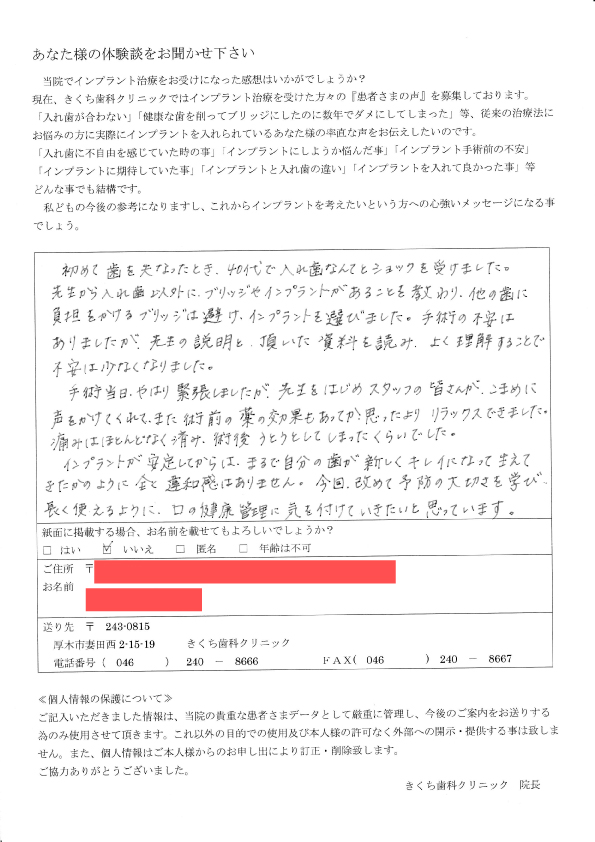 あなた様の体験談をお聞かせ下さい
当院でインプラント治療をお受けになった感想はいかがでしょうか?
現在、きくち歯科クリニックではインプラント治療を受けた方々の『患者さまの声』を募集しております。
「入れ歯が合わない」「健康な歯を削ってブリッジにしたのに数年でダメにしてしまった」等、従来の治療法に
お悩みの方に実際にインプラントを入れられているあなた様の率直な声をお伝えしたいのです。
「入れ歯に不自由を感じていた時の事」「インプラントにしようか悩んだ事」「インプラント手術前の不安」
「インプラントに期待していた事」「インプラントと入れ歯の違い」「インプラントを入れて良かった事」等
どんな事でも結構です。
私どもの今後の参考になりますし、これからインプラントを考えたいという方への心強いメッセージになる事
でしょう。
初めて歯を失なったとき、40代で入れ歯なんてとショックを受けました。
先生から入れ歯以外に、ブリッジやインプラントがあることを教わり、他の歯に
負担をかけるブリッジは避け、インプラントを選びました。手術の不安は
ありましたが、先生の説明と、頂いた資料を読み、よく理解することで
不安は少なくなりました。
手術当日、やはり緊張しましたが、先生をはじめスタッフの皆さんが、こまめに
声をかけてくれて、また術前の薬の効果もあってか、思ったよりリラックスできました。
痛みはほとんどなく済み、術後うとうとしてしまったくらいでした。
インプラントが安定してからは、まるで自分の歯が新しくキレイになって生えて
きたかのように全く違和感はありません。今回、改めて予防の大切さを学び、
長く使えるように、口の健康管理に気を付けていきたいと思っています。
紙面に掲載する場合、お名前を載せてもよろしいでしょうか?
□ はい ☑ いいえ □ 匿名 □ 年齢は不可
ご住所 〒
お名前
送り先 〒 243-0815
厚木市妻田西 2-15-19 きくち歯科クリニック
電話番号( 046 ) 240 - 8666 FAX( 046 ) 240 - 8667
≪個人情報の保護について≫
ご記入いただきました情報は、当院の貴重な患者さまデータとして厳重に管理し、今後のご案内をお送りする
為のみ使用させて頂きます。これ以外の目的での使用及び本人様の許可なく外部への開示・提供する事は致しま
せん。また、個人情報はご本人様からのお申し出により訂正・削除致します。
ご協力ありがとうございました。
きくち歯科クリニック 院長